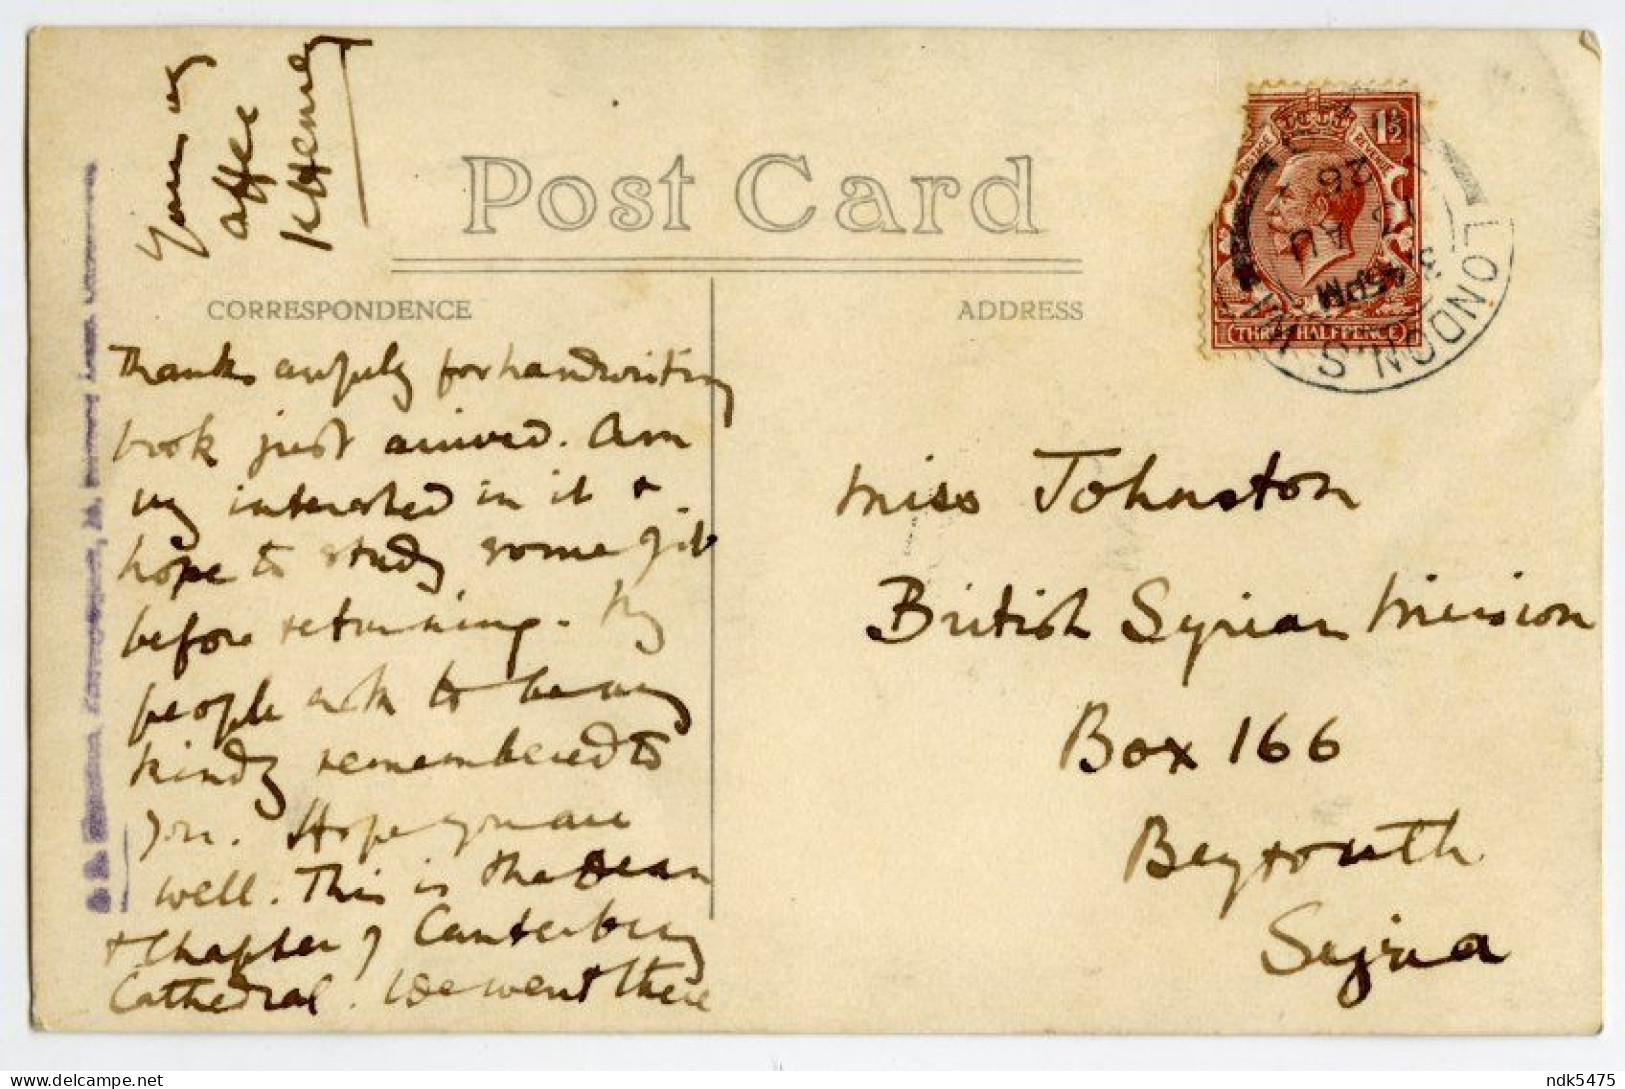 Post Card
CORRESPONDENCE
ADDRESS
Thanks awfully for handwriting
book just arrived. Am
vy interested in it &
hope to study some of it
before returning. My
people ask to be vy
kindly remembered to
you. Hope you are
well. This is the Dean
& Chapter of Canterbury
Cathedral. We went there
Yours vy
affec
K Henry
Miss Johnston
British Syrian Mission
Box 166
Beyrouth
Syria
1½
POSTAGE REVENUE
THREE HALFPENCE
LONDON.S.W.1
3 45PM
AU
26
ndk5475